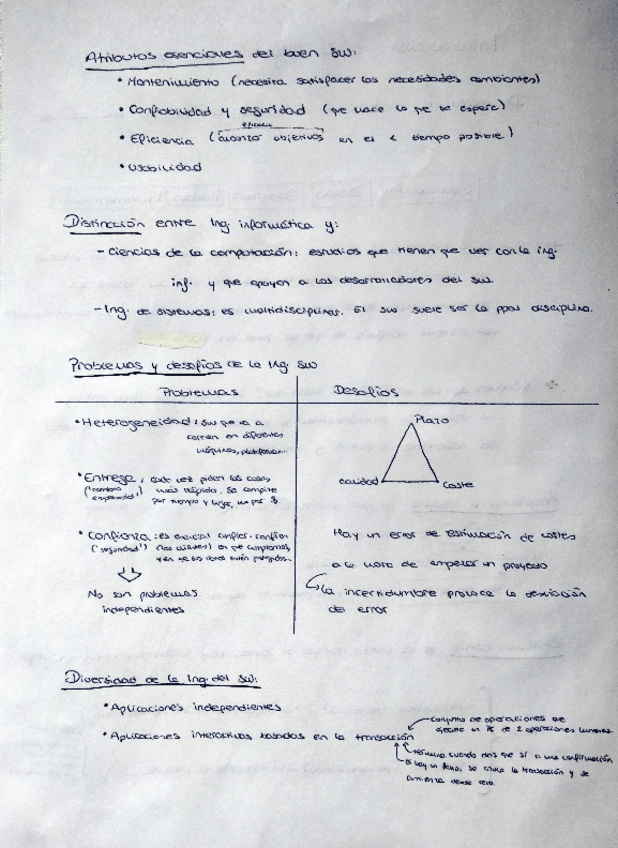 Atributos esenciales del buen sw:
• Mantenimiento (necesita satisfacer las necesidades cambiantes)
• Confiabilidad y seguridad (que hace lo que se espera)
eficacia
• Eficiencia (alcanzar objetivos en el < tiempo posible)
• Usabilidad
Distinción entre Ing. informática y:
- Ciencias de la computación: estudios que tienen que ver con la ing.
inf. y que apoyan a los desarrolladores del sw.
- Ing. de sistemas: es multidisciplinar. El sw suele ser la ppal disciplina.
Problemas y desafíos de la Ing. sw
Problemas
Desafíos
• Heterogeneidad: sw que va a
correr en diferentes
máquinas, plataformas...
• Entrega: cada vez piden las cosas
más rápido, se compite
por tiempo y lugar, no por $
• Confianza: es esencial
("seguridad")
No son problemas
independientes
Plazo
Calidad
Coste
Hay un error de estimación de costes
a la hora de empezar un proyecto
la incertidumbre provoca la desviación
del error
Diversidad de la Ing. del sw:
• Aplicaciones independientes
• Aplicaciones interactivas basadas en la transacción
conjunto de operaciones
término cuando das que sí a una confirmación
Si hay un fallo, se anula la transacción y se
comienza desde cero.